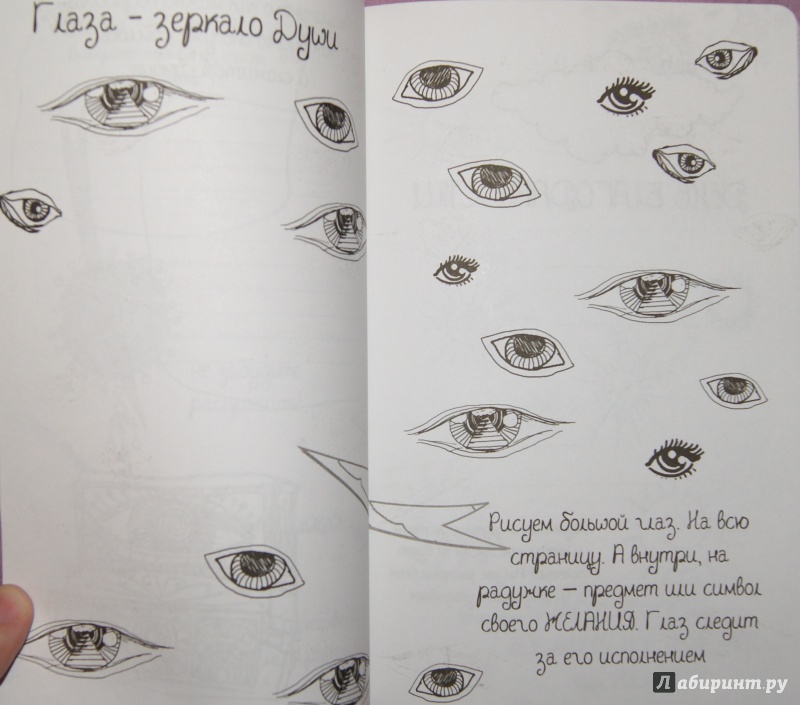 Глаза – зеркало Души
Рисуем большой глаз. На всю
страницу. А внутри, на
радужке – предмет или символ
своего ЖЕЛАНИЯ. Глаз следит
за его исполнением
Лабиринт.ру